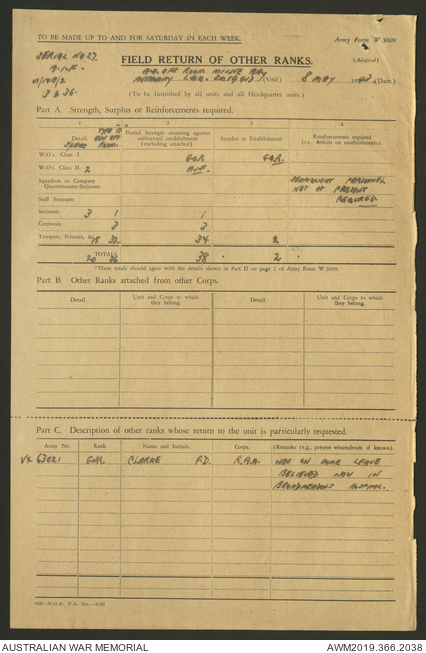 TO BE MADE UP TO AND FOR SATURDAY IN EACH WEEK.
Army Form W.3009
SERIAL NO 27.
FIELD RETURN OF OTHER RANKS.
(Adapted)
A.I.F.
OPS ROOM MILNE BAY
(Unit) 8 MAY 1943 (Date.)
(To be furnished by all units and all Headquarter units.)
Part A. Strength, Surplus or Reinforcements required.
1 2 3 4
Detail. Posted Strength counting against authorized establishment (excluding attached) Surplus to Establishment Reinforcements required (i.e., deficits on establishment).
W.O's. Class I.
W.O's. Class II. 2
Squadron or Company Quartermaster-Serjeants
SEARCHLIGHT PERSONNEL
NOT AT PRESENT
Staff Serjeants
REQUIRED.
Serjeants 3 1 1
Corporals 3 3
Troopers, Privates, 15 32 34 2
TOTAL 20 36 38 2
*These totals should agree with the details shown in Part D on page 2 of Army Form W.3009.
Part B. Other Ranks attached from other Corps.
Detail. Unit and Corps to which they belong. Detail. Unit and Corps to which they belong.
Part C. Description of other ranks whose return to the unit is particularly requested.
Army No. Rank. Name and Initials. Corps. (Remarks (e.g., present whereabouts if known).
VX 63021 GNR. CLARKE F.D. R.A.A. WAS ON HOME LEAVE
BELIEVED NOW IN
BROADMEADOWS HOSPITAL.
AUSTRALIAN WAR MEMORIAL
AWM2019.366.2038